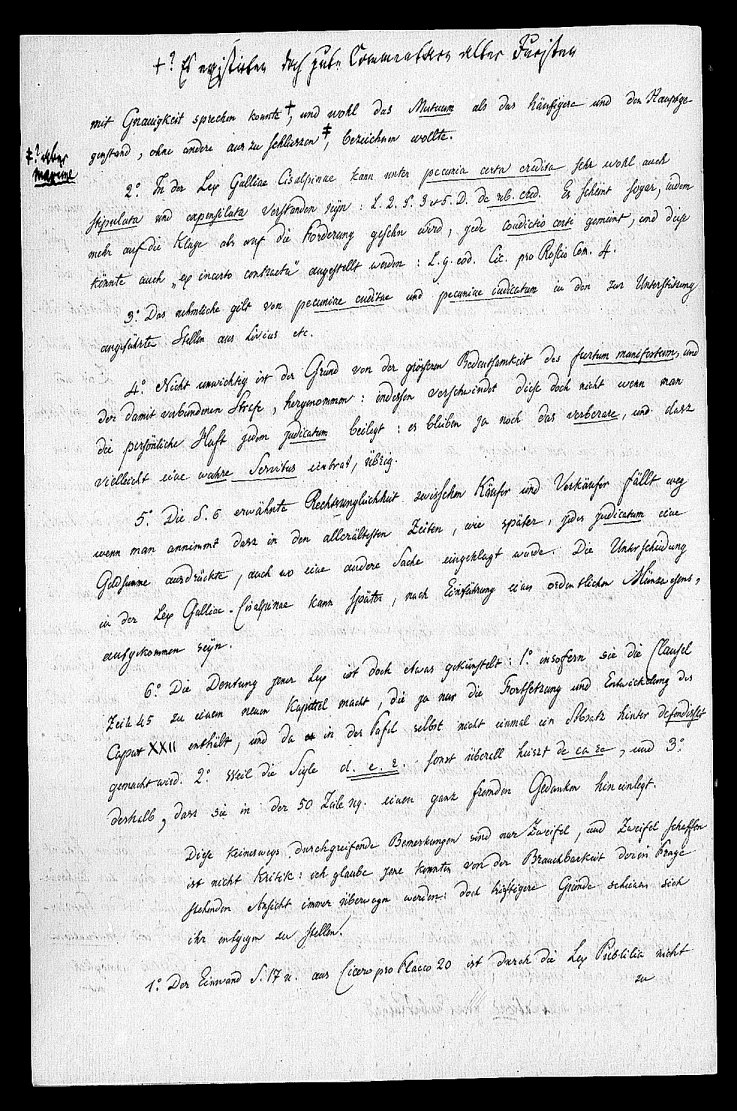 +? Es existiren doch gute Commentare alter Juristen
mit Gnauigkeit sprechen konnte +, und wohl das Mutuum als das häufigere und den Hauptge-
genstand, ohne andere aus zu schliessen ‡, bezeichnen wollte.
‡? aber
maxime
2.° In der Lex Galliae Cisalpinae kann unter pecunia certa credita sehr wohl auch
stipulata und expensilata verstanden seyn: L. 2. §. 3 & 5. D. de reb. cred. Es scheint sogar, indem
mehr auf die Klage als auf die Forderung gesehn wird, jede condictio certi gemeint, und diese
könnte auch „ex incerto contractu" angestellt werden: L. 9. eod. Cic. pro Roscio Com. 4.
3.° Das nehmliche gilt von pecuniae creditae und pecuniae iudicatum in den zur Unterstützung
angeführten Stellen aus Livius etc.
4.° Nicht unwichtig ist der Grund von der grössern Bedeutsamkeit des furtum manifestum, und
der damit verbundenen Strafe, hergenommen: indessen verschwindet diese doch nicht wenn man
die persönliche Haft jedem judicatum beilegt: es bleiben ja noch das verberare, und dasz
vielleicht eine wahre Servitus eintrat, übrig.
5.° Die S. 6 erwähnte Rechtsungleichheit zwischen Käufer und Verkäufer fällt weg
wenn man annimmt dasz in den allerältesten Zeiten, wie später, jedes judicatum eine
Geldsumme ausdrückte, auch wo eine andere Sache eingeklagt wurde. Die Unterscheidung
in der Lex Galliae-Cisalpinae kann später, nach Einführung eines ordentlichen Münzwesens,
aufgekommen seyn.
6.° Die Deutung jener Lex ist doch etwas gekünstelt: 1.° insofern sie die Clausel
Zeile 45 zu einem neuen Kapittel macht, die ja nur die Fortsetzung und Entwickelung des
Caput XXII enthält, und da in der Tafel selbst nicht einmal ein Absatz hinter
gemacht wird. 2.° Weil die Sigle d. e. r. sonst überall heiszt de ea re, und 3.°
deshalb, dasz sie in der 50 Zeile einen ganz fremden Gedanken hineinlegt.
Diese keineswegs durchgreifende Bemerkungen sind nur Zweifel, und Zweifel schaffen
ist nicht Kritik: ich glaube jene konnten von der Brauchbarkeit der in Frage
stehenden Ansicht immer überwogen werden: doch kräftigere Gründe scheinen sich
ihr entgegen zu stellen.
1.° Der Einwand S. 17 u. aus Cicero pro Flacco 20 ist durch die Lex Publilia nicht
zu